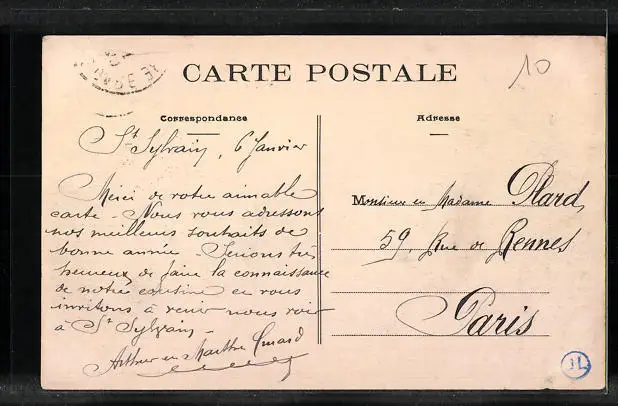 CARTE POSTALE
10
Correspondance
Adresse
St Sylvain, 6 Janvier
Merci de votre aimable
carte - Nous vous adressons
nos meilleurs souhaits de
bonne année - Serions très
heureux de faire la connaissance
de notre cousine et vous
invitons à venir nous voir
à St Sylvain -
Arthur et Marthe
Monsieur et Madame Plard,
59, Rue de Rennes
Paris
JL